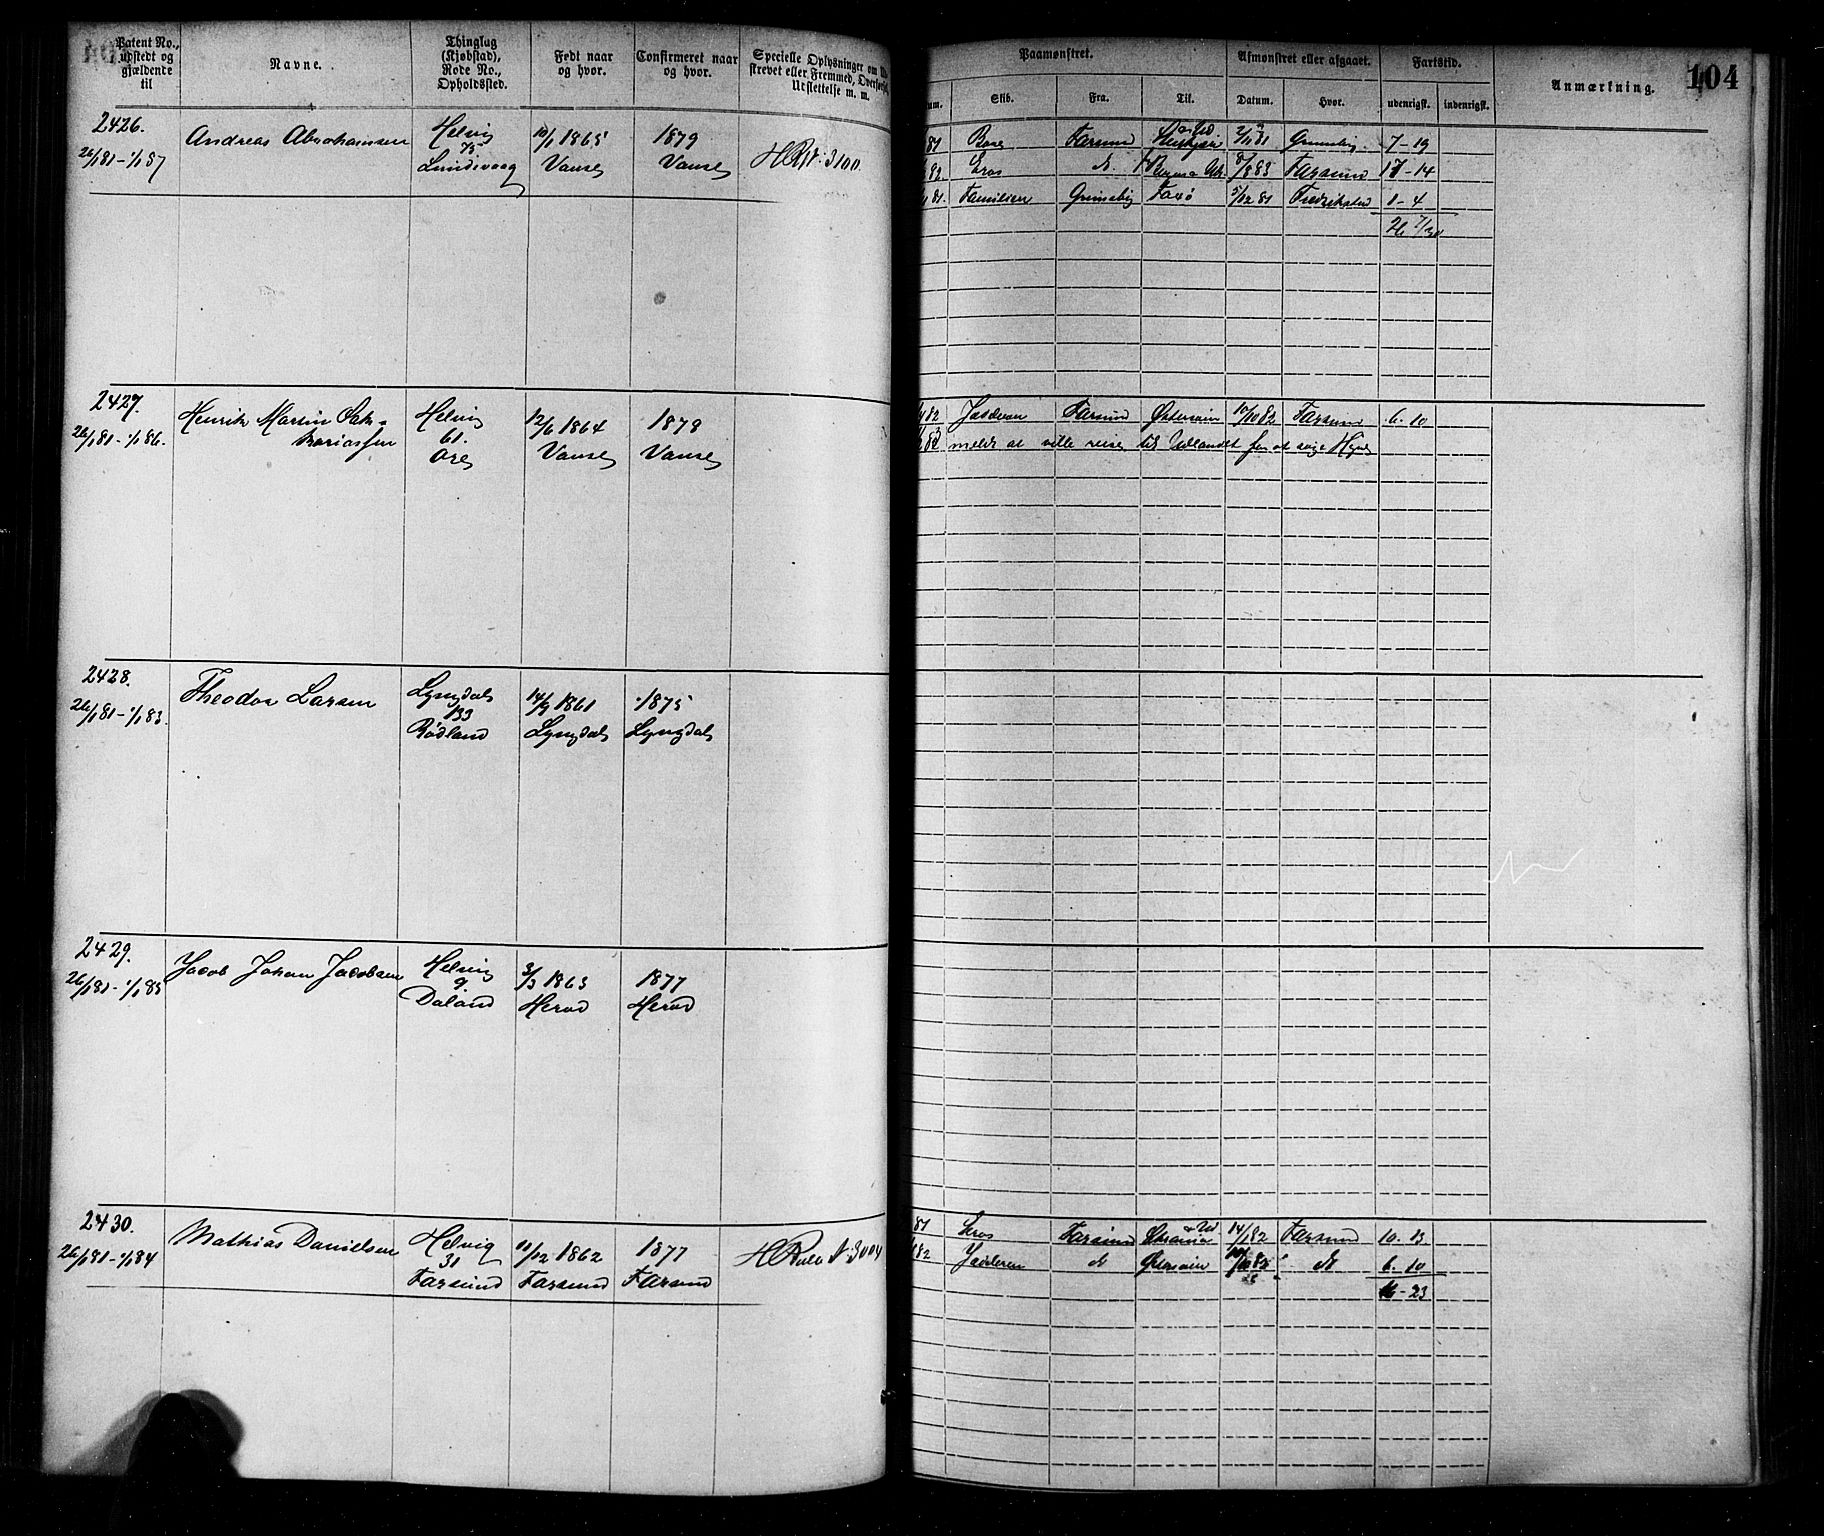 Patent No., udstedt og gjældende til
Navne.
Thinglag (Kjøbstad), Rode No., Opholdssted.
Født naar og hvor.
Confirmeret naar og hvor.
Specielle Oplysninger om
strevet eller Fremmed, Overførsel,
Udslettelse m. m.
Paamønstret.
Skib.
Fra.
Til.
Afmønstret eller afgaaet.
Datum.
Hvor.
Fartstid.
udenrigsk.
indenrigsk.
Anmærkning.
104
2426.
26/1 81 - 1/1 87
Andreas Abrahamsen
Helvig
75
Lundevaag
10/1 1865
Vanse
1879
Vanse
H Rst. 3100.
81 Bore Farsund 81 Grimsby 7-19
82. Eros d. 8/8 83 Farsund 17-14
81. Familien Grimsby Faxø 5/12 81 Fredrikstad 1-4
26 7/30
2427.
26/1 81 - 1/1 86.
Henrik Martin Zak-
kariassen
Helvig
61.
Ore
12/6 1864
Vanse
1878
Vanse
82 Jæderen Farsund Østersøen 10/10 82 Farsund 6. 10
meldt at ville reise til Udlandet for at søge Hyre
2428.
26/1 81 - 1/1 83.
Theodor Larsen
Lyngdal
133
Rødland
14/9 1861
Lyngdal
1875
Lyngdal
2429.
26/1 81 - 1/1 85
Jacob Johan Jacobsen
Helvig
9.
Daland
3/3 1863
Herad
1877
Herad
2430.
26/1 81 - 1/1 84
Mathias Danielsen
Helvig
31
Farsund
11/12 1862
Farsund
1877
Farsund
H Rulle N: 3004
81 Eros Farsund 14/1 82 Farsund 10. 13
82 Jæderen d Østersøen d 6. 10
16-23